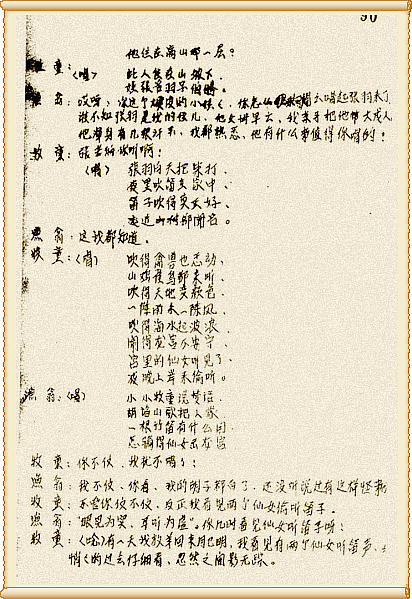 90
他住在高山那一层?
牧童:(唱) 此人住在山坡下,
渔翁:哎呀,你这个小孩子,你怎么唱起张羽来了
谁不知张羽是我的侄儿,他父母早亡,我亲手把他带大成人
他有几根汗毛,我都熟悉,他有什么值得你唱的!
牧童:你听啊!
(唱) 张羽白天把柴打,
夜里吹笛在家中,
笛子吹得实在好,
远近山村都闻名。
渔翁:这我都知道。
牧童:(唱) 吹得禽兽也感动、
山鸡候鸟都来听
吹得天地变颜色
一阵雨来一阵风
吹得海水起波浪
闹得龙宫不安宁、
宫里的仙女听见了、
夜晚上岸来偷听。
渔翁:(唱) 小小牧童说梦话
胡编山歌把人蒙
一根竹笛有什么用
怎能得仙女出龙宫
牧童:你不信、我就不唱了!
渔翁:我不信、你看、我的胡子都白了、还没听说过有这样怪事
牧童:不管你信不信、反正我看见两个仙女偷听笛子。
渔翁:“眼见为实、耳听为虚”。你几时看见仙女听笛子呀!
牧童:(唸)有一天我放羊回来月已明,我看见有两个仙女听笛声、
悄悄的过去仔细看、忽然之间影无踪。